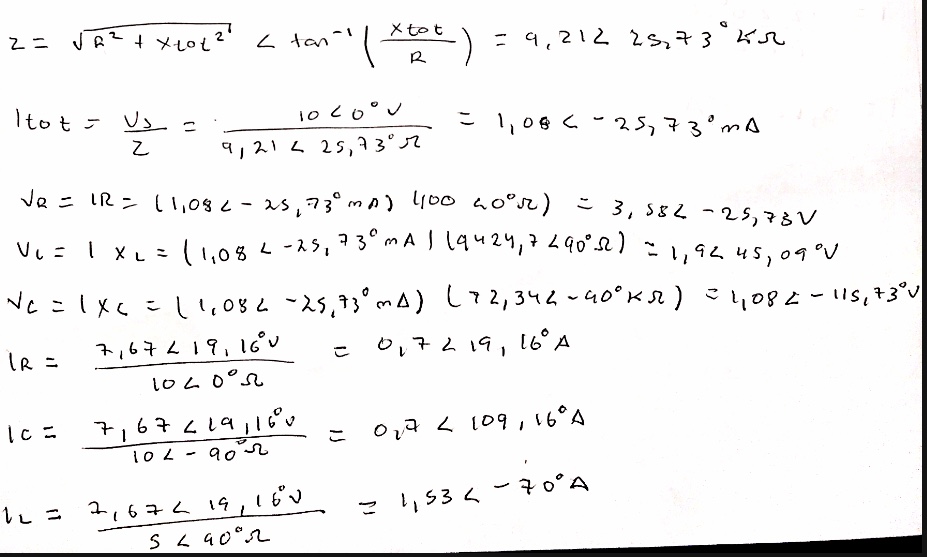 Z = √R² + Xtot² < tan⁻¹ (Xtot / R) = 9,21 ∠ 25,73° KΩ
Itot = Vs / Z = 10 ∠ 0° V / 9,21 ∠ 25,73° Ω = 1,08 ∠ -25,73° mA
VR = IR = (1,08 ∠ -25,73° mA) (100 ∠ 0° Ω) = 3,58 ∠ -25,73 V
VL = I XL = (1,08 ∠ -25,73° mA) (9424,7 ∠ 90° Ω) = 1,9 ∠ 45,09° V
VC = I XC = (1,08 ∠ -25,73° mA) (72,34 ∠ -90° KΩ) = 1,08 ∠ -115,73° V
IR = 7,67 ∠ 19,16° V / 10 ∠ 0° Ω = 0,7 ∠ 19,16° A
IC = 7,67 ∠ 19,16° V / 10 ∠ -90° Ω = 0,7 ∠ 109,16° A
IL = 7,67 ∠ 19,16° V / 5 ∠ 90° Ω = 1,53 ∠ -70° A